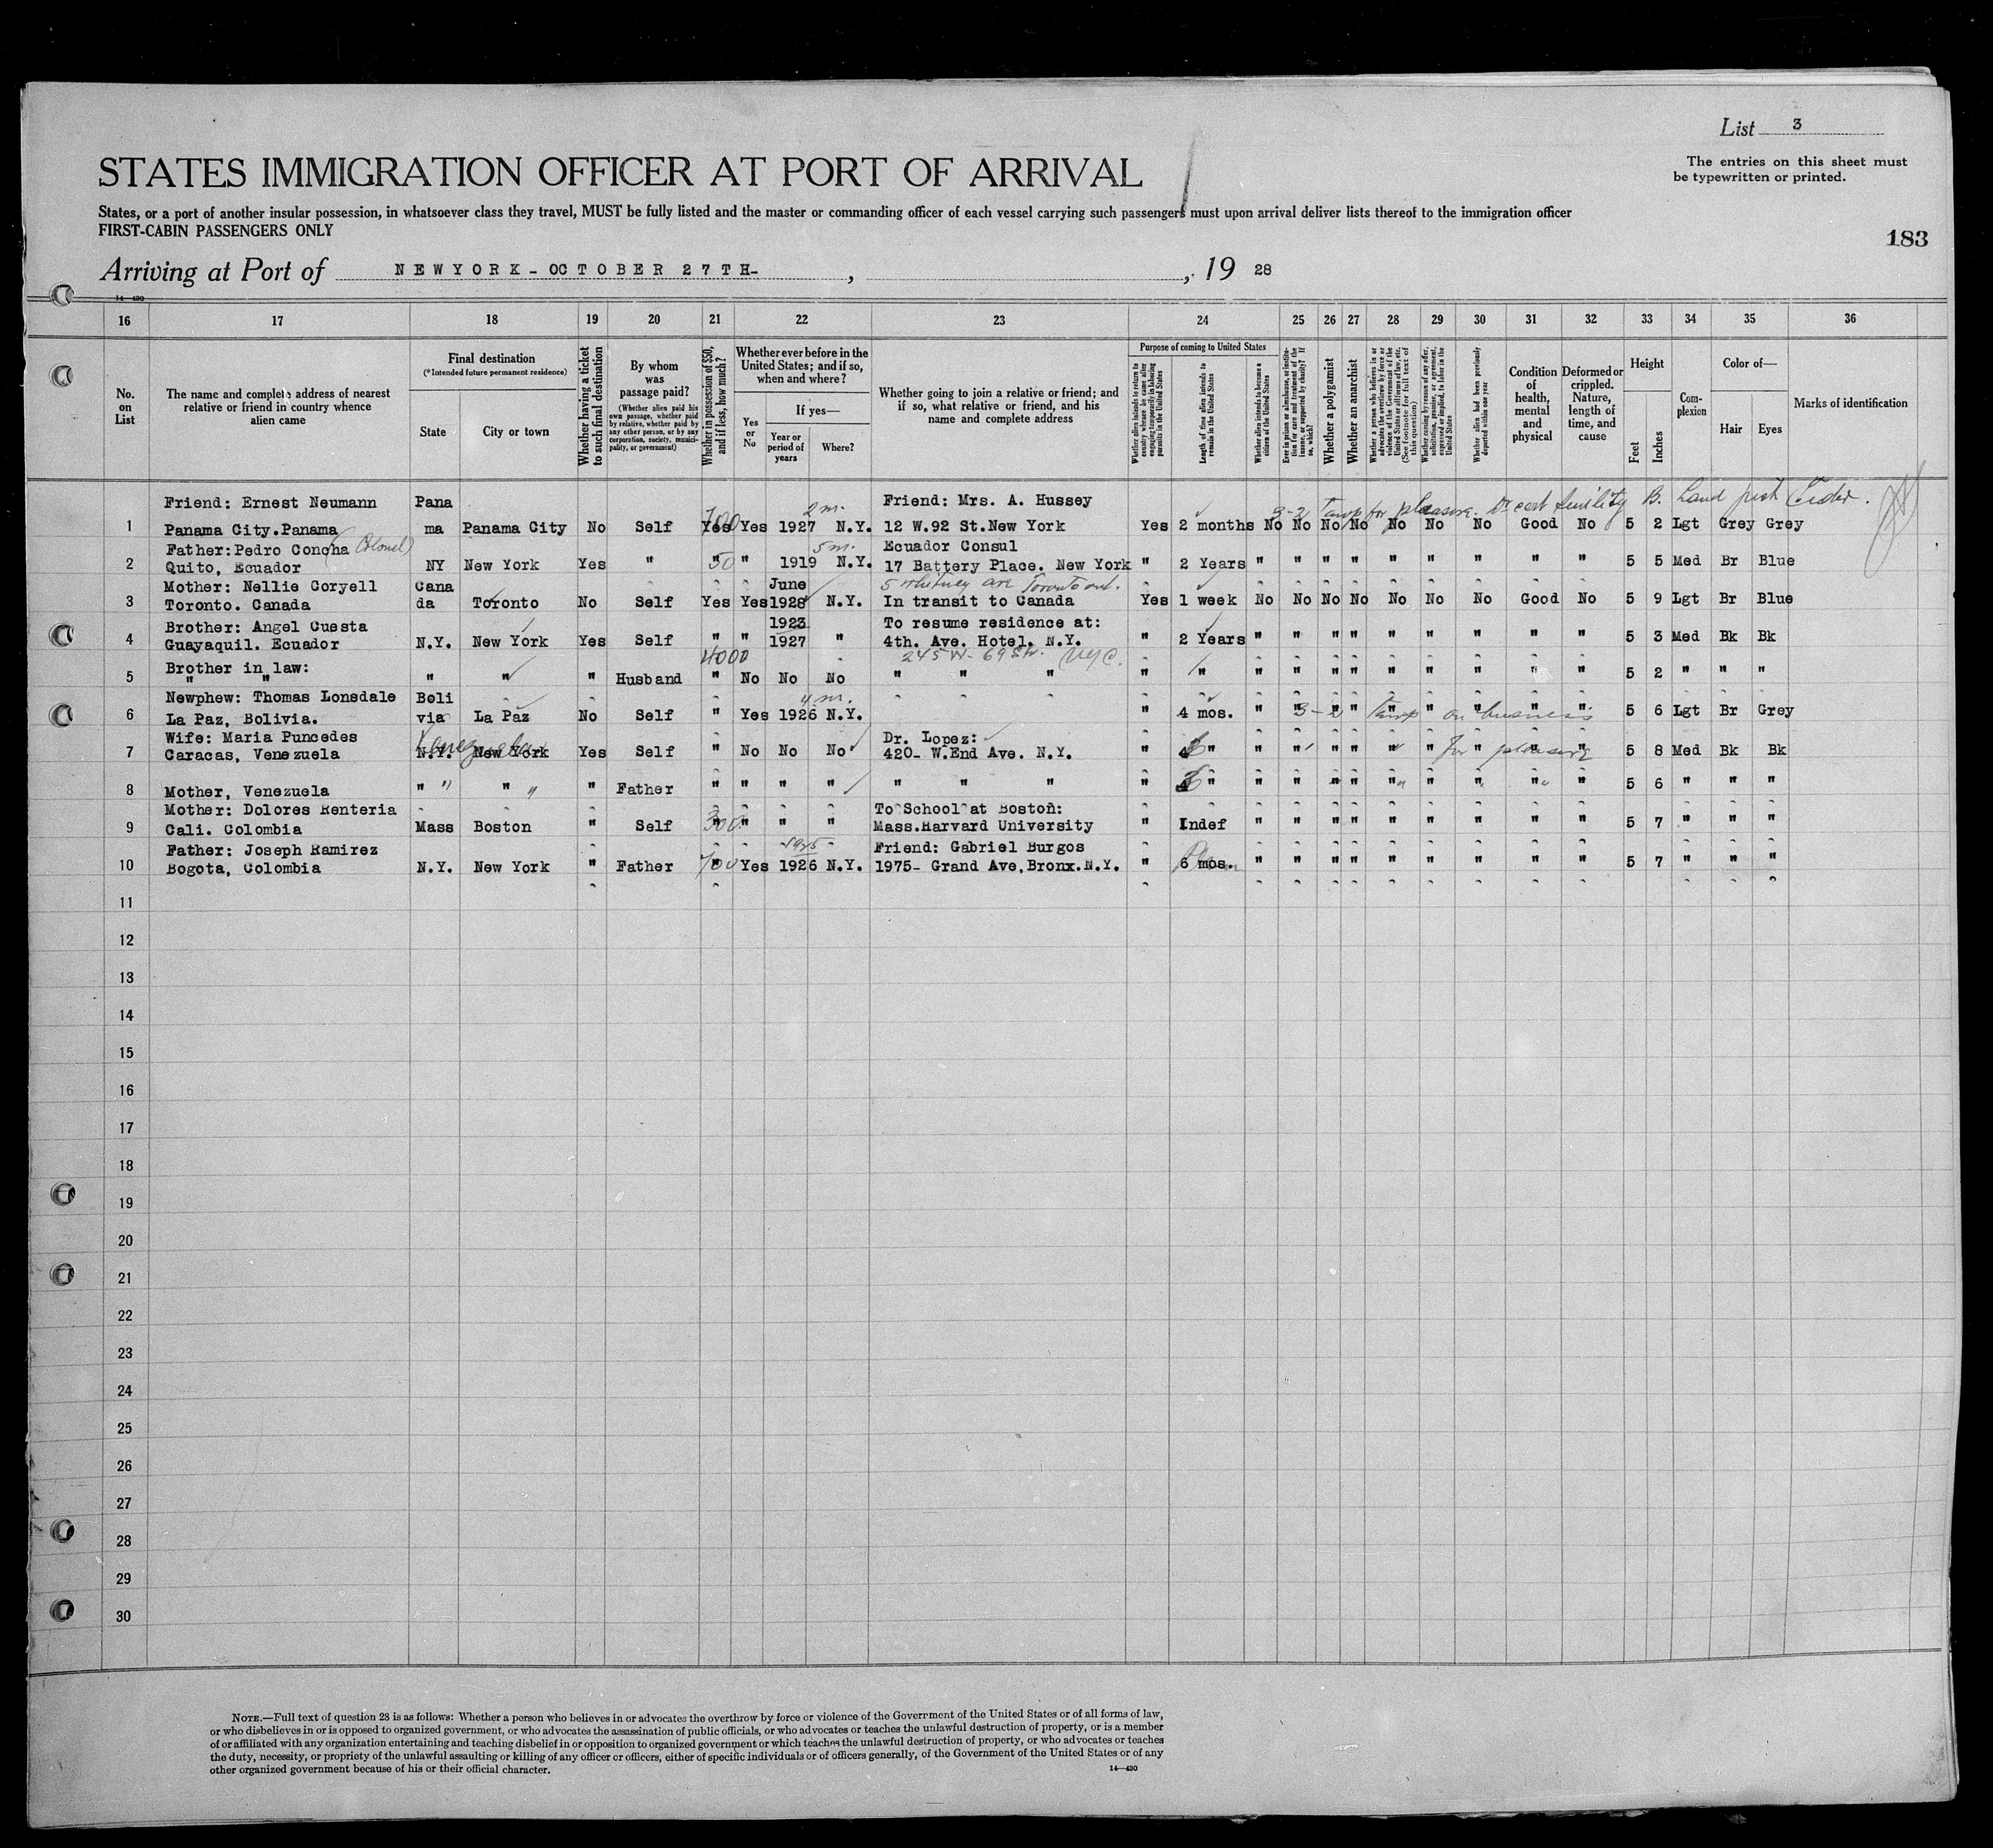 List 3
The entries on this sheet must
be typewritten or printed.
STATES IMMIGRATION OFFICER AT PORT OF ARRIVAL
States, or a port of another insular possession, in whatsoever class they travel, MUST be fully listed and the master or commanding officer of each vessel carrying such passengers must upon arrival deliver lists thereof to the immigration officer
FIRST-CABIN PASSENGERS ONLY
183
Arriving at Port of NEWYORK - OCTOBER 27TH- , , 19 28
14—430
16 17 18 19 20 21 22 23 24 25 26 27 28 29 30 31 32 33 34 35 36
No. on List
The name and complete address of nearest relative or friend in country whence alien came
Final destination
(*Intended future permanent residence)
State City or town
Whether having a ticket to such final destination
By whom was passage paid?
(Whether alien paid his own passage, whether paid by relative, whether paid by any other person, or by any corporation, society, municipality, or government)
Whether in possession of $50, and if less, how much?
Whether ever before in the United States; and if so, when and where?
Yes or No
If yes—
Year or period of years Where?
Whether going to join a relative or friend; and if so, what relative or friend, and his name and complete address
Purpose of coming to United States
Whether alien intends to return to country whence he came after engaging temporarily in laboring pursuits in the United States
Length of time alien intends to remain in the United States
Whether alien intends to become a citizen of the United States
Ever in prison or almshouse, or institution for care and treatment of the insane, or supported by charity? If so, which?
Whether a polygamist
Whether an anarchist
Whether a person who believes in or advocates the overthrow by force or violence of the Government of the United States or all forms of law, etc. (See footnote for full text of this question)
Whether coming by reason of any offer, solicitation, promise, or agreement, expressed or implied, to labor in the United States
Whether alien had been previously deported within one year
Condition of health, mental and physical
Deformed or crippled. Nature, length of time, and cause
Height
Feet Inches
Complexion
Color of—
Hair Eyes
Marks of identification
Friend: Ernest Neumann Pana 2 m. Friend: Mrs. A. Hussey 3-2 Temp for pleasure. Dr cert senility B.
1 Panama City.Panama ma Panama City No Self Yes Yes 1927 N.Y. 12 W.92 St.New York Yes 2 months No No No No No No No Good No 5 2 Lgt Grey Grey
Father:Pedro Concha (Colonel) 5 m. Ecuador Consul
2 Quito, Ecuador NY New York Yes " 50 " 1919 N.Y. 17 Battery Place. New York " 2 Years " " " " " " " " " 5 5 Med Br Blue
Mother: Nellie Coryell Cana June 5 Whitney ave Toronto ont.
3 Toronto. Canada da Toronto No Self Yes Yes 1928 N.Y. In transit to Canada Yes 1 week No No No No No No No Good No 5 9 Lgt Br Blue
Brother: Angel Cuesta 1923 To resume residence at:
4 Guayaquil. Ecuador N.Y. New York Yes Self " " 1927 " 4th. Ave. Hotel. N.Y. " 2 Years " " " " " " " " " 5 3 Med Bk Bk
Brother in law: 4000 245 W. 69 St. NYC.
5 " " " " " Husband " No No No " " " " " " " " " " " " " " " 5 2 " " "
Newphew: Thomas Lonsdale Boli 4 m.
6 La Paz, Bolivia. via La Paz No Self " Yes 1926 N.Y. " 4 mos. " " " " " " " " " 3-2 Temp on business 5 6 Lgt Br Grey
Wife: Maria Puncedes Venezuela Dr. Lopez:
7 Caracas, Venezuela N.Y. New York Yes Self " No No No 420- W.End Ave. N.Y. " 6 " " " " " " " " " " for pleasure 5 8 Med Bk Bk
8 Mother, Venezuela " " " Father " " " " " " " " 6 " " " " " " " " " " 5 6 " " "
Mother: Dolores Renteria To School at Boston:
9 Cali. Colombia Mass Boston " Self 300 " " " " Mass.Harvard University " Indef " " " " " " " " " 5 7 " " "
Father: Joseph Ramirez 1925 Friend: Gabriel Burgos
10 Bogota, Colombia N.Y. New York " Father " Yes 1926 N.Y. 1975- Grand Ave,Bronx.N.Y. " 6 mos. " " " " " " " " " 5 7 " " "
11
12
13
14
15
16
17
18
19
20
21
22
23
24
25
26
27
28
29
30
NOTE.—Full text of question 28 is as follows: Whether a person who believes in or advocates the overthrow by force or violence of the Government of the United States or of all forms of law,
or who disbelieves in or is opposed to organized government, or who advocates the assassination of public officials, or who advocates or teaches the unlawful destruction of property, or is a member
of or affiliated with any organization entertaining and teaching disbelief in or opposition to organized government or which teaches the unlawful destruction of property, or who advocates or teaches
the duty, necessity, or propriety of the unlawful assaulting or killing of any officer or officers, either of specific individuals or of officers generally, of the Government of the United States or of any
other organized government because of his or their official character.
14—430